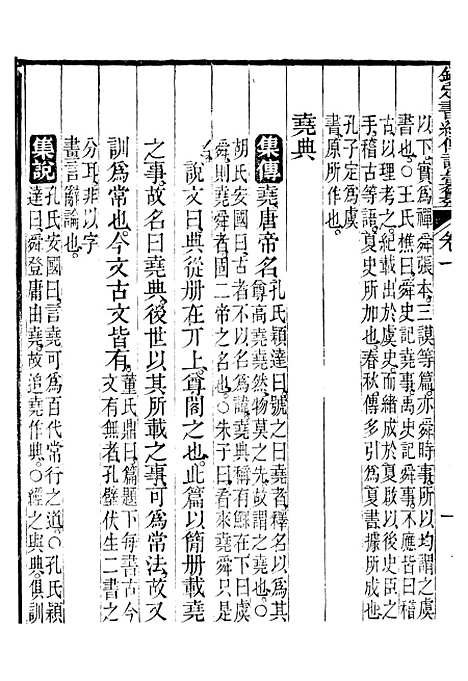 欽定書經傳說彙纂 卷一 一
以下實為禪舜張本。三謨等篇。亦舜時事。所以均謂之虞
書也。○王氏樵曰。舜史記堯事。禹史記舜事。不應皆曰稽
古。以理考之。紀載出於虞史。而緒成於夏啟以後史臣之
手。稽古等語。夏史所加也。春秋傳多引為夏書。據所成也。
孔子定為虞
書。原所作也。
堯典
集傳 堯。唐帝名。孔氏穎達曰。號之曰堯者。釋名以為其
尊高堯堯然。物莫之先。故謂之堯也。○
胡氏安國曰。古者不以名為諱。堯典稱有鰥在下曰虞
舜。則堯舜者。固二帝之名也。○朱子曰。看來堯舜只是
說文曰。典從册在丌上。尊閣之也。此篇以簡册載堯
之事。故名曰堯典。後世以其所載之事。可為常法。故又
訓為常也。今文古文皆有。董氏鼎曰。篇題下每書古今
文有無者。孔壁伏生二書之
分耳。非以字
畫言辭論也。
集說 孔氏安國曰。言堯可為百代常行之道。○孔氏穎
達曰。舜登庸由堯。故追堯作典。○經之與典。俱訓